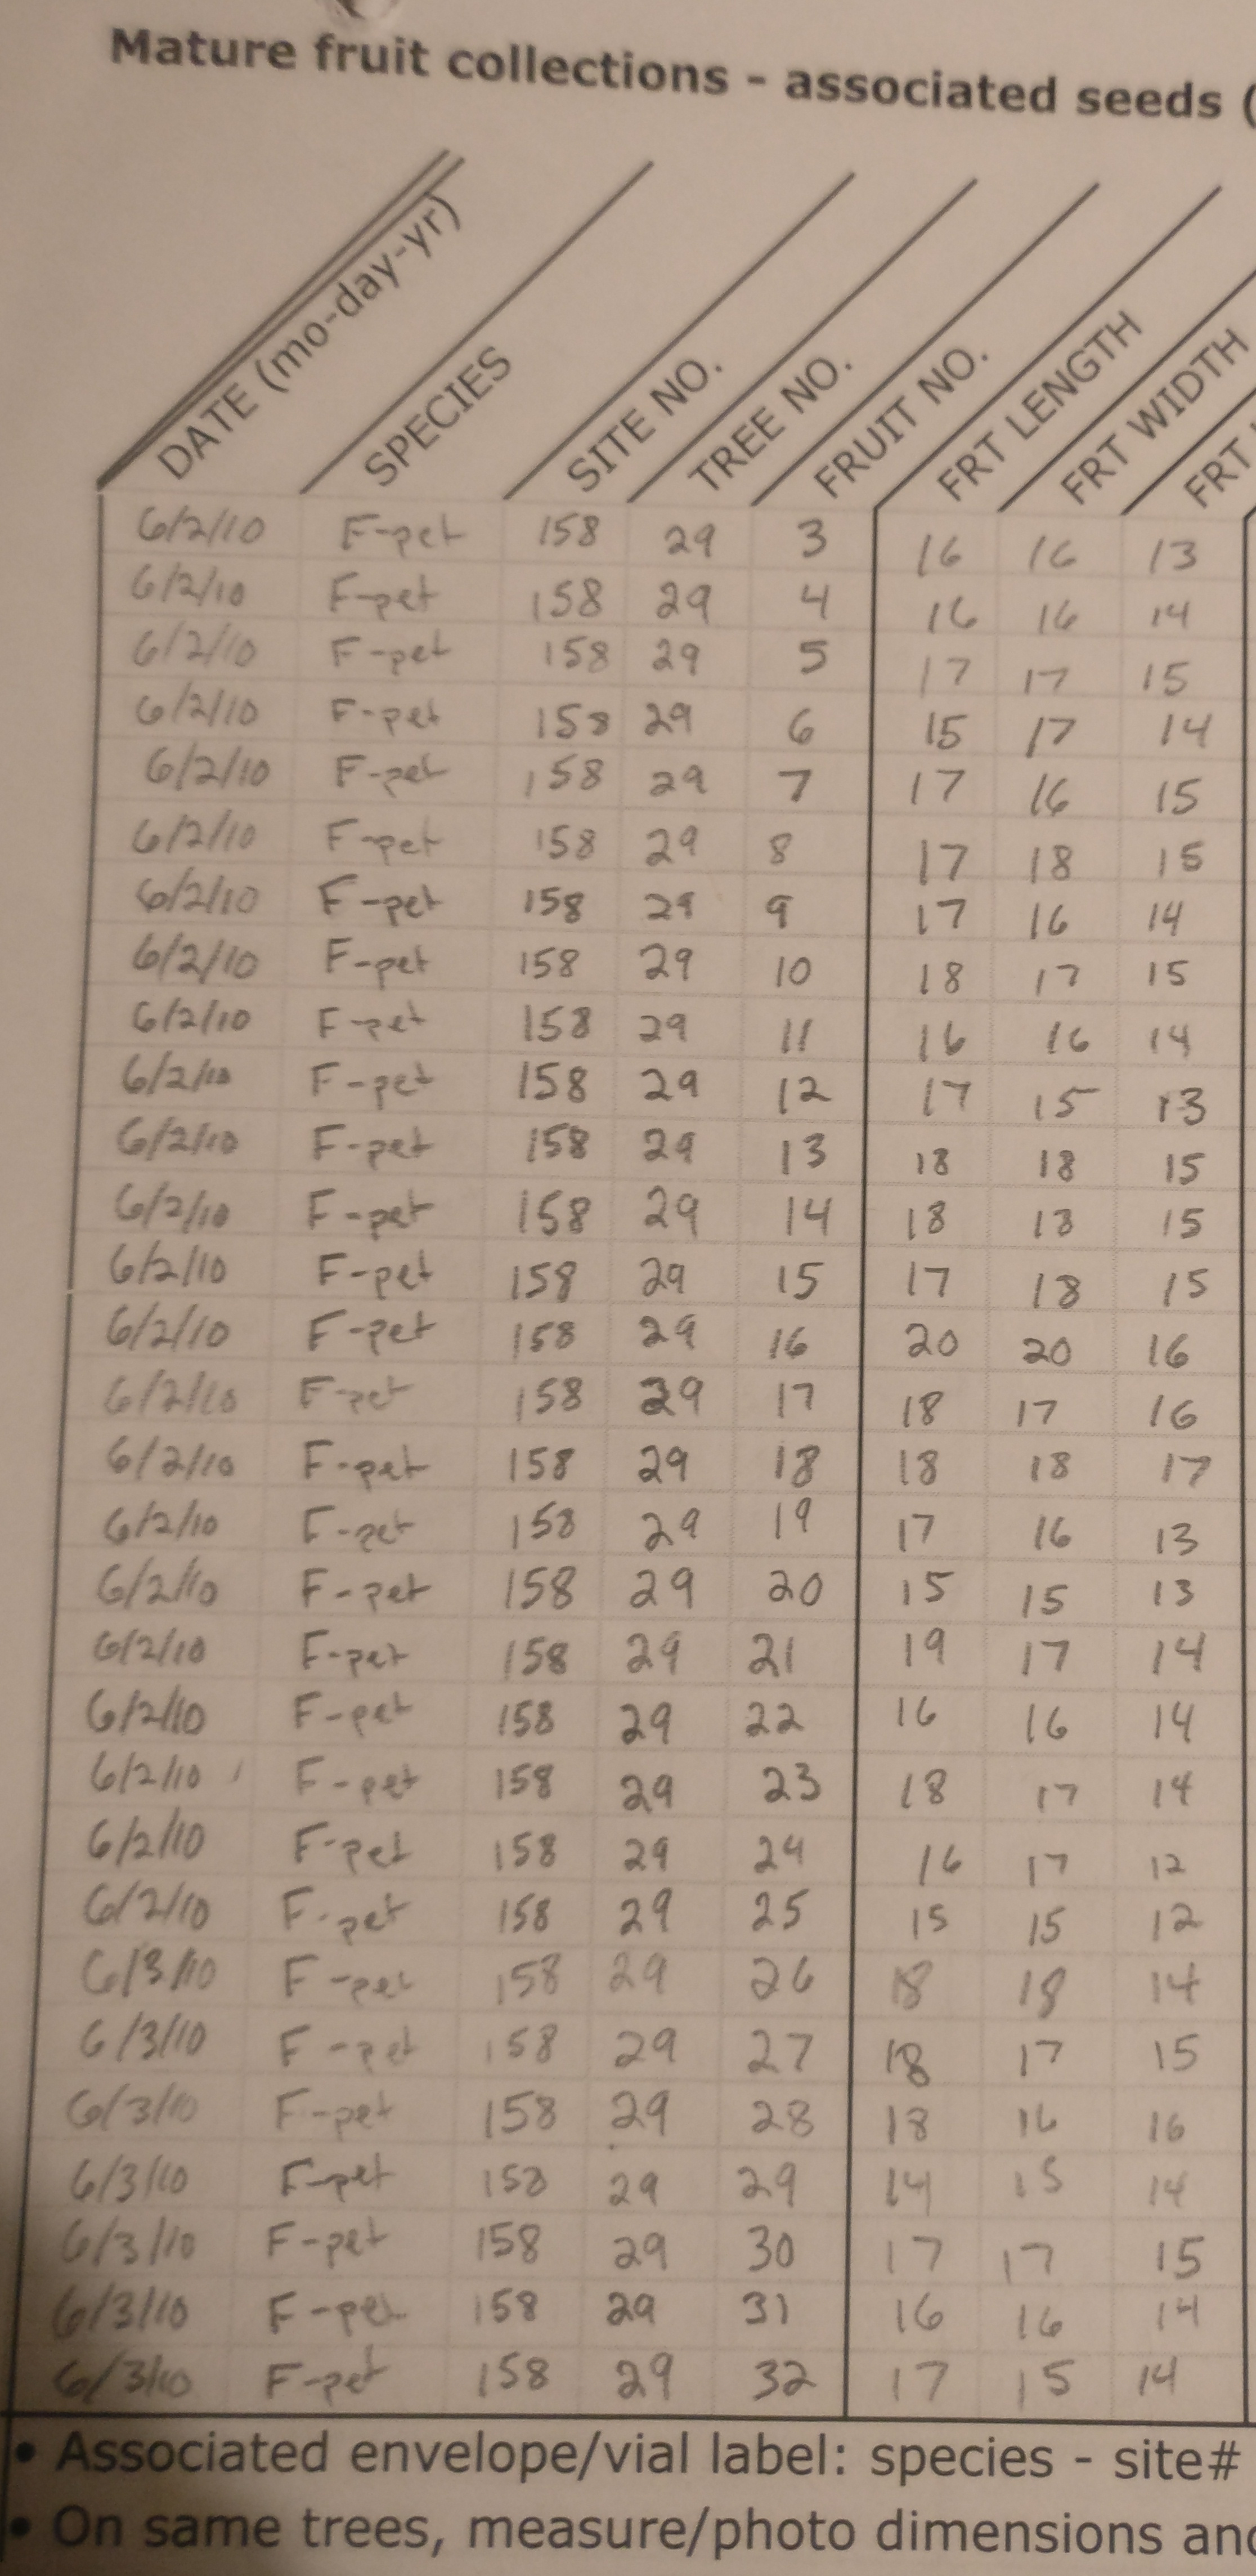 Mature fruit collections - associated seeds (
DATE (mo-day-yr) SPECIES SITE NO. TREE NO. FRUIT NO. FRT LENGTH FRT WIDTH FRT
6/2/10 F-pet 158 29 3 16 16 13
6/2/10 F-pet 158 29 4 16 16 14
6/2/10 F-pet 158 29 5 17 17 15
6/2/10 F-pet 158 29 6 15 17 14
6/2/10 F-pet 158 29 7 17 16 15
6/2/10 F-pet 158 29 8 17 18 15
6/2/10 F-pet 158 29 9 17 16 14
6/2/10 F-pet 158 29 10 18 17 15
6/2/10 F-pet 158 29 11 16 16 14
6/2/10 F-pet 158 29 12 17 15 13
6/2/10 F-pet 158 29 13 18 18 15
6/2/10 F-pet 158 29 14 18 18 15
6/2/10 F-pet 158 29 15 17 18 15
6/2/10 F-pet 158 29 16 20 20 16
6/2/10 F-pet 158 29 17 18 17 16
6/2/10 F-pet 158 29 18 18 18 17
6/2/10 F-pet 158 29 19 17 16 13
6/2/10 F-pet 158 29 20 15 15 13
6/2/10 F-pet 158 29 21 19 17 14
6/2/10 F-pet 158 29 22 16 16 14
6/2/10 F-pet 158 29 23 18 17 14
6/2/10 F-pet 158 29 24 16 17 12
6/2/10 F-pet 158 29 25 15 15 12
6/3/10 F-pet 158 29 26 18 18 14
6/3/10 F-pet 158 29 27 18 17 15
6/3/10 F-pet 158 29 28 18 16 16
6/3/10 F-pet 158 29 29 14 15 14
6/3/10 F-pet 158 29 30 17 17 15
6/3/10 F-pet 158 29 31 16 16 14
6/3/10 F-pet 158 29 32 17 15 14
• Associated envelope/vial label: species - site#
• On same trees, measure/photo dimensions and